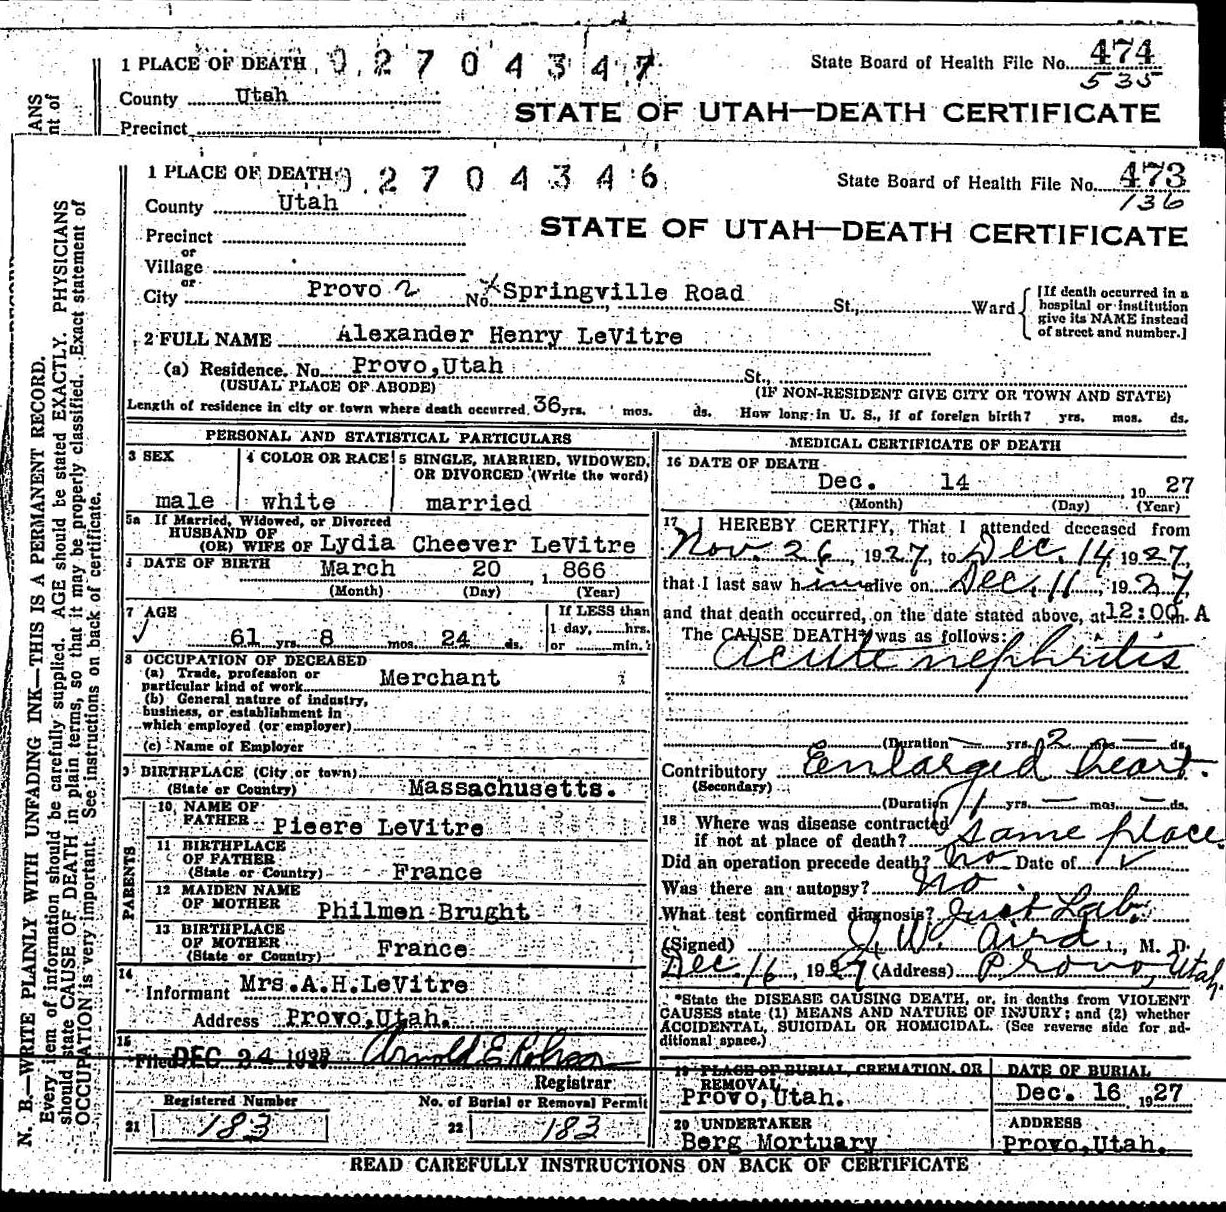 1 PLACE OF DEATH 02704347 State Board of Health File No. 474
535
County Utah
STATE OF UTAH—DEATH CERTIFICATE
Precinct
ANS
nt of
1 PLACE OF DEATH 02704346 State Board of Health File No. 473
136
County Utah
STATE OF UTAH—DEATH CERTIFICATE
Precinct
or
Village
or
City Provo 2 No. Springville Road St., Ward
[If death occurred in a hospital or institution give its NAME instead of street and number.]
2 FULL NAME Alexander Henry LeVitre
(a) Residence. No. Provo,Utah St.,
(USUAL PLACE OF ABODE) (IF NON-RESIDENT GIVE CITY OR TOWN AND STATE)
Length of residence in city or town where death occurred 36 yrs. mos. ds. How long in U. S., if of foreign birth? yrs. mos. ds.
PERSONAL AND STATISTICAL PARTICULARS
3 SEX
male
4 COLOR OR RACE
white
5 SINGLE, MARRIED, WIDOWED,
OR DIVORCED (Write the word)
married
5a If Married, Widowed, or Divorced
HUSBAND OF
(OR) WIFE OF Lydia Cheever LeVitre
DATE OF BIRTH March 20, 1866
(Month) (Day) (Year)
7 AGE
61 yrs. 8 mos. 24 ds.
If LESS than
1 day, hrs.
or min.
8 OCCUPATION OF DECEASED
(a) Trade, profession or
particular kind of work Merchant
(b) General nature of industry,
business, or establishment in
which employed (or employer)
(c) Name of Employer
9 BIRTHPLACE (City or town)
(State or Country) Massachusetts.
PARENTS
10 NAME OF
FATHER Pieere LeVitre
11 BIRTHPLACE
OF FATHER
(State or Country) France
12 MAIDEN NAME
OF MOTHER Philmen Brught
13 BIRTHPLACE
OF MOTHER
(State or Country) France
14
Informant Mrs.A.H.LeVitre
Address Provo,Utah.
15
Filed DEC 24 1927 Arnold E Robison
Registrar
Registered Number No. of Burial or Removal Permit
21 183 22 183
MEDICAL CERTIFICATE OF DEATH
16 DATE OF DEATH
Dec. 14, 1927
(Month) (Day) (Year)
17 I HEREBY CERTIFY, That I attended deceased from
Nov. 26, 1927, to Dec. 14, 1927,
that I last saw him alive on Dec. 11, 1927,
and that death occurred, on the date stated above, at 12:00 m. A
The CAUSE DEATH* was as follows:
Acute nephritis
(Duration — yrs. 2 mos. — ds.
Contributory Enlarged heart.
(Secondary)
(Duration 1 yrs. — mos. — ds.
18 Where was disease contracted
if not at place of death? same place.
Did an operation precede death? No Date of
Was there an autopsy? No
What test confirmed diagnosis? Just Lab.
(Signed) J. W. Aird, M. D.
Dec. 16, 1927 (Address) Provo, Utah.
*State the DISEASE CAUSING DEATH, or, in deaths from VIOLENT
CAUSES state (1) MEANS AND NATURE OF INJURY; and (2) whether
ACCIDENTAL, SUICIDAL OR HOMICIDAL. (See reverse side for ad-
ditional space.)
19 PLACE OF BURIAL, CREMATION, OR
REMOVAL
Provo,Utah.
DATE OF BURIAL
Dec. 16 1927
20 UNDERTAKER
Berg Mortuary
ADDRESS
Provo,Utah.
READ CAREFULLY INSTRUCTIONS ON BACK OF CERTIFICATE
N. B.—WRITE PLAINLY WITH UNFADING INK—THIS IS A PERMANENT RECORD.
Every item of information should be carefully supplied. AGE should be stated EXACTLY. PHYSICIANS
should state CAUSE OF DEATH in plain terms, so that it may be properly classified. Exact statement of
OCCUPATION is very important. See instructions on back of certificate.